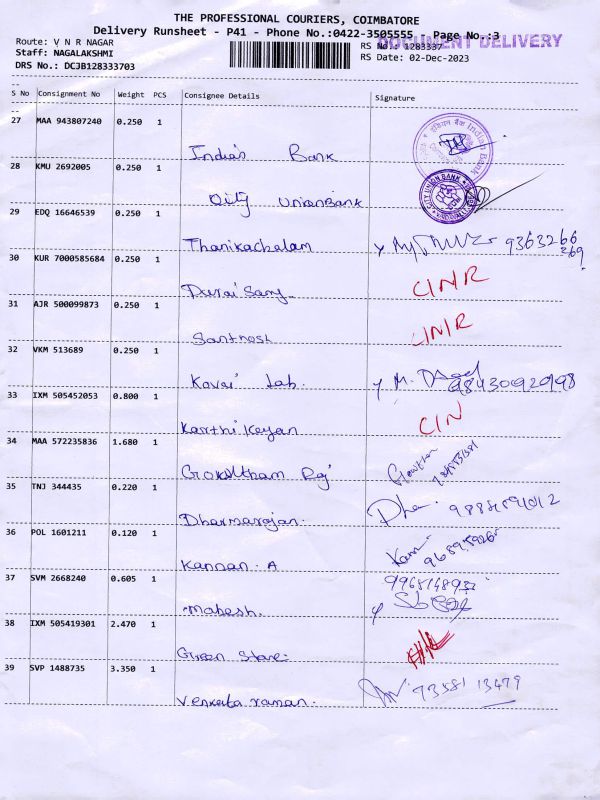 THE PROFESSIONAL COURIERS, COIMBATORE
Delivery Runsheet - P41 - Phone No.:0422-3505555 - Page No.:3
DOCUMENT DELIVERY
Route: V N R NAGAR
RS No.: 1283337
Staff: NAGALAKSHMI
RS Date: 02-Dec-2023
DRS No.: DCJB128333703
S No Consignment No Weight PCS Consignee Details Signature
27 MAA 943807240 0.250 1
Indian Bank
28 KMU 2692005 0.250 1
City Union Bank
CITY UNION BANK
29 EDQ 16646539 0.250 1
Thanikachalam
30 KUR 7000585684 0.250 1
Durai Samy
31 AJR 500099873 0.250 1
Santhosh
32 VKM 513689 0.250 1
Kovai Lab. 98430920198
33 IXM 505452053 0.800 1
Karthi Keyan CIN
34 MAA 572235836 1.680 1
35 TNJ 344435 0.220 1
Dharmarajan.
36 POL 1601211 0.120 1
Kannan. A
37 SVM 2668240 0.605 1
Mahesh.
38 IXM 505419301 2.470 1
Green Store
39 SVP 1488735 3.350 1
Venkata raman. 73581 13479